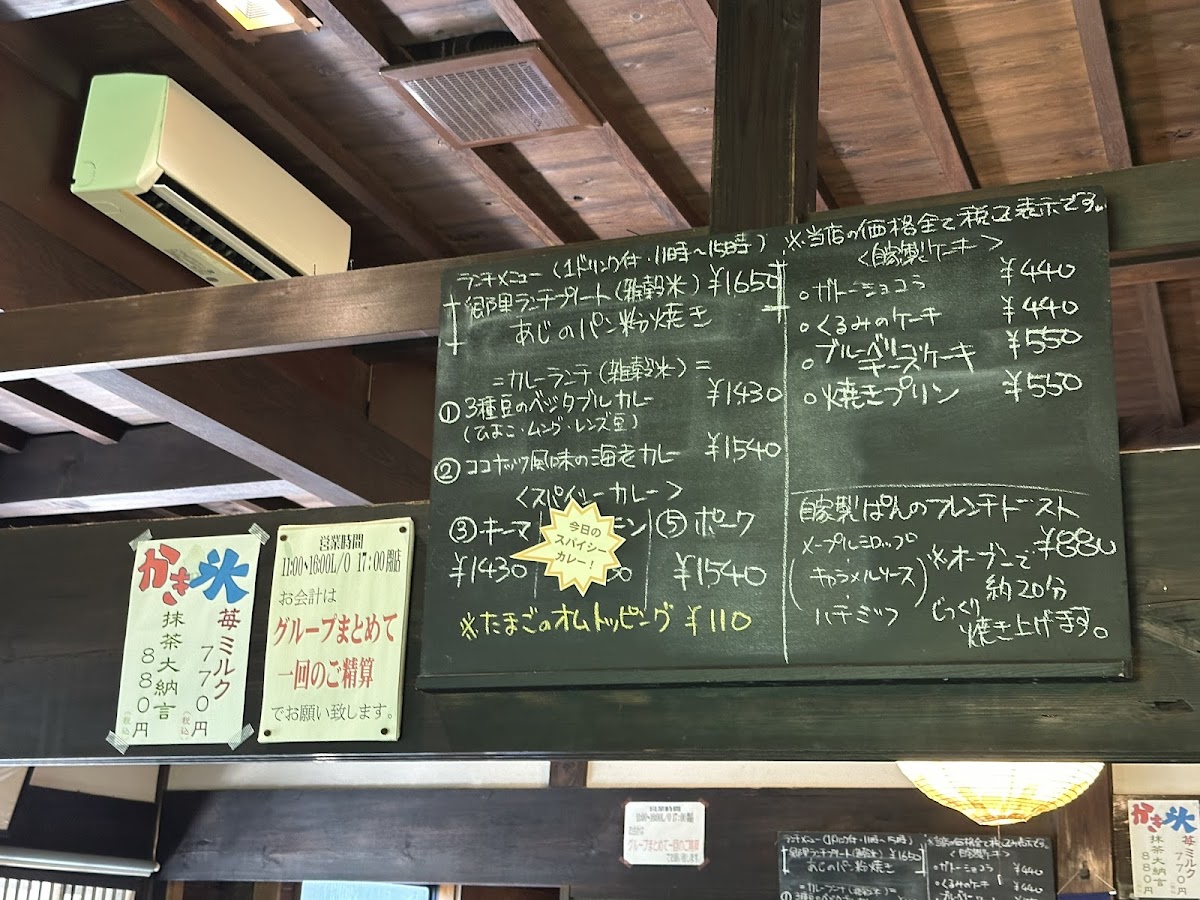 かき氷
苺ミルク
770円
(税込)
抹茶大納言
880円
(税込)
営業時間
11:00~16:00L/O 17:00閉店
お会計は
グループまとめて
一回のご精算
でお願い致します。
ランチメニュー(1ドリンク付・11時~15時)
郷里ランチプレート(雑穀米) ¥1650
あじのパン粉焼き
=カレーランチ(雑穀米)=
①3種豆のベジタブルカレー ¥1430
(ひよこ・ムング・レンズ豆)
②ココナッツ風味の海老カレー ¥1540
<スパイシーカレー>
③キーマ
¥1430
今日の
スパイシー
カレー!
⑤ポーク
¥1540
※たまごのオムトッピング ¥110
※当店の価格全て税込表示です。
<自家製ケーキ>
○ガトーショコラ ¥440
○くるみのケーキ ¥440
○ブルーベリーチーズケーキ ¥550
○焼きプリン ¥550
自家製ぱんのフレンチトースト
¥880
メープルシロップ
キャラメルソース
ハチミツ
※オーブンで
約20分
じっくり
焼き上げます。
営業時間
11:00~16:00L/O 17:00閉店
お会計は
グループまとめて一回のご精算
でお願い致します。
ランチメニュー(1ドリンク付・11時~15時)
郷里ランチプレート(雑穀米) ¥1650
あじのパン粉焼き
=カレーランチ(雑穀米)=
<自家製ケーキ>
○ガトーショコラ ¥440
○くるみのケーキ ¥440
かき氷
苺ミルク
770円
抹茶大納言
880円